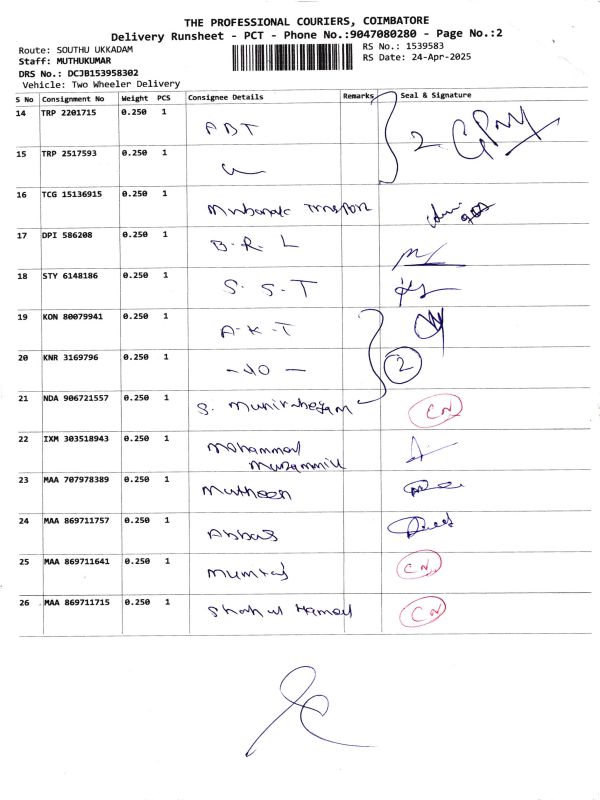 THE PROFESSIONAL COURIERS, COIMBATORE
Delivery Runsheet - PCT - Phone No.:9047080280 - Page No.:2
Route: SOUTHU UKKADAM
RS No.: 1539583
Staff: MUTHUKUMAR
RS Date: 24-Apr-2025
DRS No.: DCJB153958302
Vehicle: Two Wheeler Delivery
S No Consignment No Weight PCS Consignee Details Remarks Seal & Signature
14 TRP 2201715 0.250 1 ABT 2
15 TRP 2517593 0.250 1
16 TCG 15136915 0.250 1
17 DPI 586208 0.250 1 B.R.L
18 STY 6148186 0.250 1 S.S.T
19 KON 80079941 0.250 1 A.K.T
20 KNR 3169796 0.250 1 -do- 2
21 NDA 906721557 0.250 1 S. Munirabegam CN
22 IXM 303518943 0.250 1 Mohammed
Muzammill
23 MAA 707978389 0.250 1 Matheen
24 MAA 869711757 0.250 1 Abbas
25 MAA 869711641 0.250 1 Mumtaj CN
26 MAA 869711715 0.250 1 Shahul Hamed CN